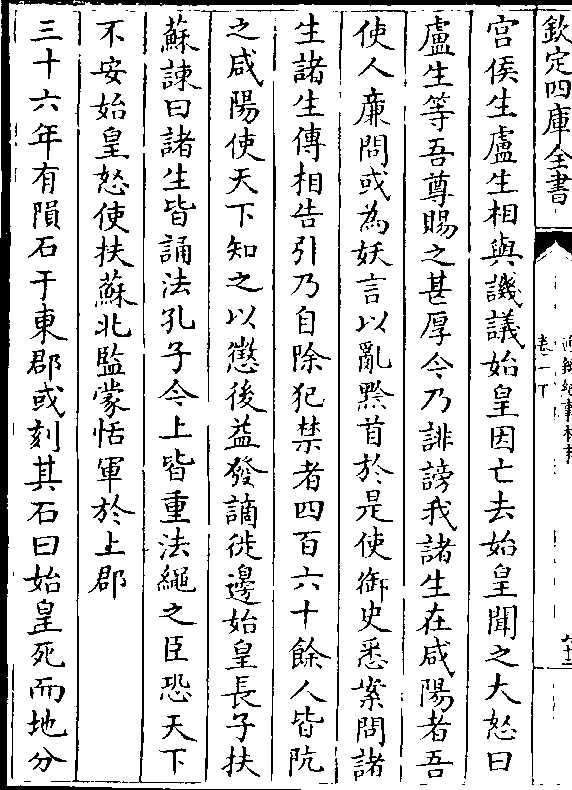 欽定四庫全書
卷一下
宫侯生盧生相與譏議始皇因亡去始皇聞之大怒曰
盧生等吾尊賜之甚厚今乃誹謗我諸生在咸陽者吾
使人廉問或為妖言以亂黔首於是使御史悉案問諸
生諸生傳相告引乃自除犯禁者四百六十餘人皆阬
之咸陽使天下知之以懲後益發謫徙邊始皇長子扶
蘇諫曰諸生皆誦法孔子今上皆重法繩之臣恐天下
不安始皇怒使扶蘇北監蒙恬軍於上郡
三十六年有隕石于東郡或刻其石曰始皇死而地分